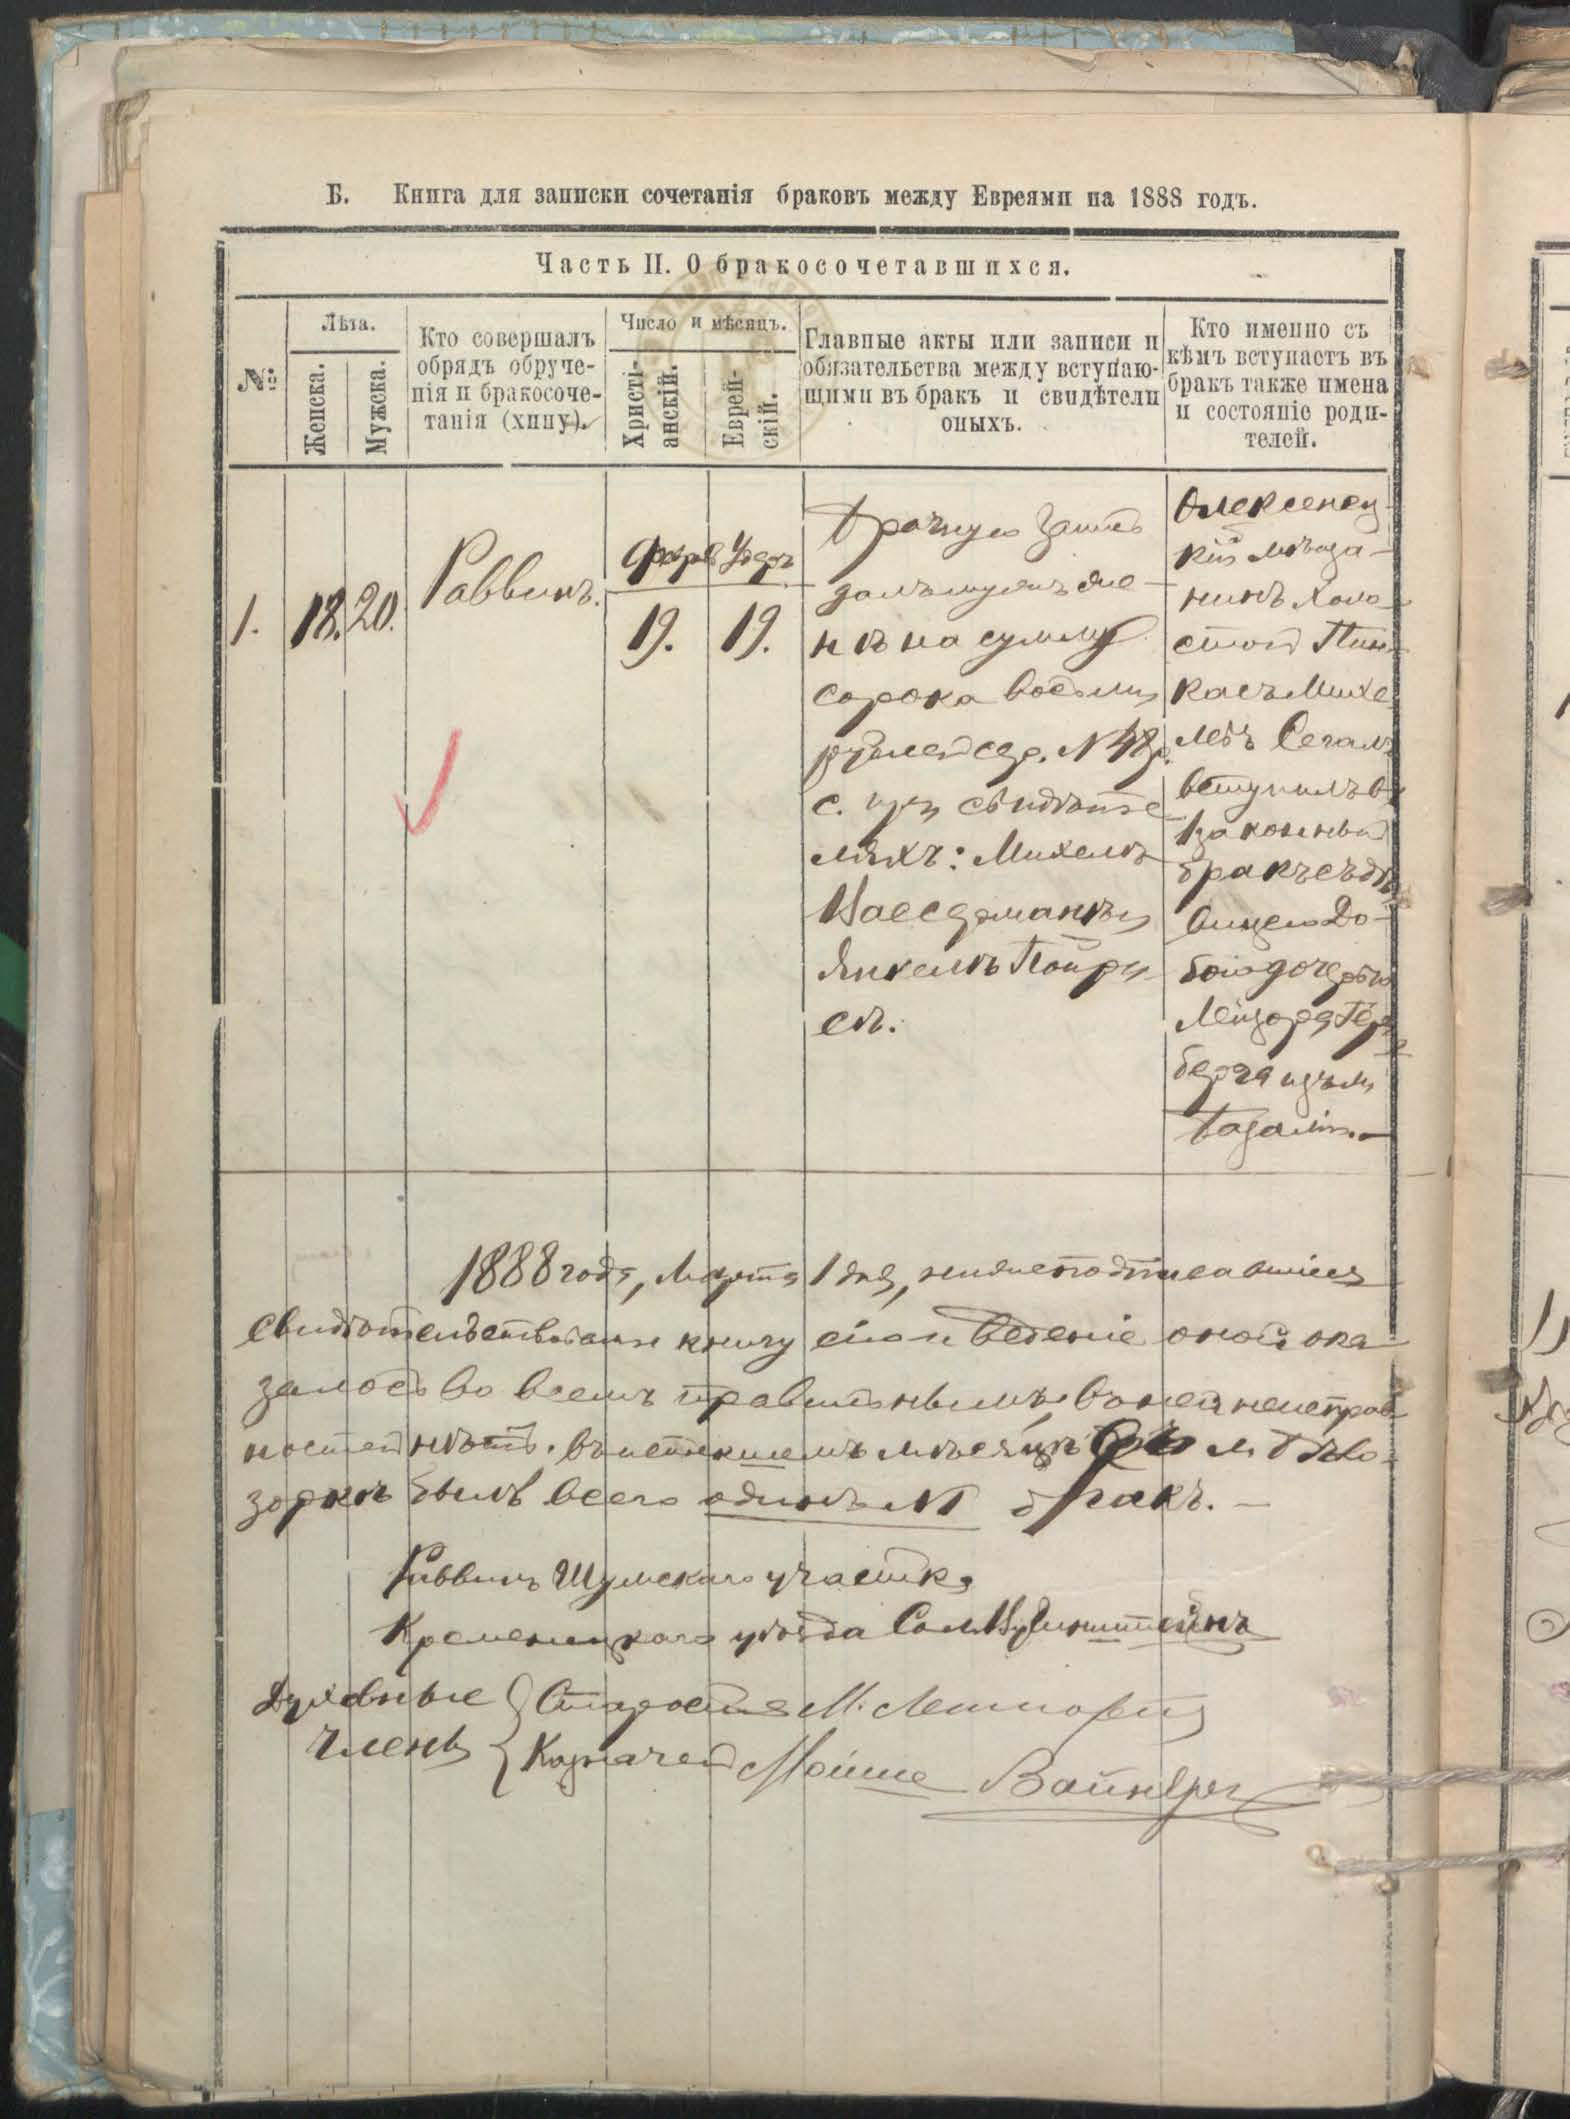 Б. Книга для записки сочетанія браковъ между Евреями на 1888 годъ.
Часть II. О бракосочетавшихся.
№
Лѣта.
Женска.
Мужска.
Кто совершалъ
обрядъ обруче-
нія и бракосоче-
танія (хипу).
Число и мѣсяцъ.
Христі-
анскій.
Еврей-
скій.
Главные акты или записи и
обязательства между вступаю-
щими въ бракъ и свидѣтели
оныхъ.
Кто именно съ
кѣмъ вступаетъ въ
бракъ также имена
и состояніе роди-
телей.
1.
18.
20.
Раввинъ.
Февр.
19.
Удеръ
19.
Брачную запись
далъ мужъ же-
нѣ на сумму
сорока восьми
рублей сер. № 48 р.
с. при свидѣте-
ляхъ: Михелѣ
и
Янкелѣ
сѣ.
Олексенец-
кій мѣща-
нинъ холо-
стой Пин-
касъ Михе-
левъ Сегалъ
вступилъ въ
законный
бракъ съ дѣ-
вицею До-
бою дочерью
Лейзора Гер-
берга изъ м.
1888 года, Марта 1 дня, нижеподписавшіеся
свидѣтельствовали книгу сію и веденіе оной ока-
залось во всемъ правильнымъ, въ ней неисправ-
ностей нѣтъ. въ истекшемъ мѣсяцѣ въ м. Выго-
зодкѣ былъ всего одинъ №1 бракъ. —
Раввинъ Шумскаго участка
Кременецкаго уѣзда
Духовные
Члены
Староста М.
Казначей Мойше Вайнбергъ